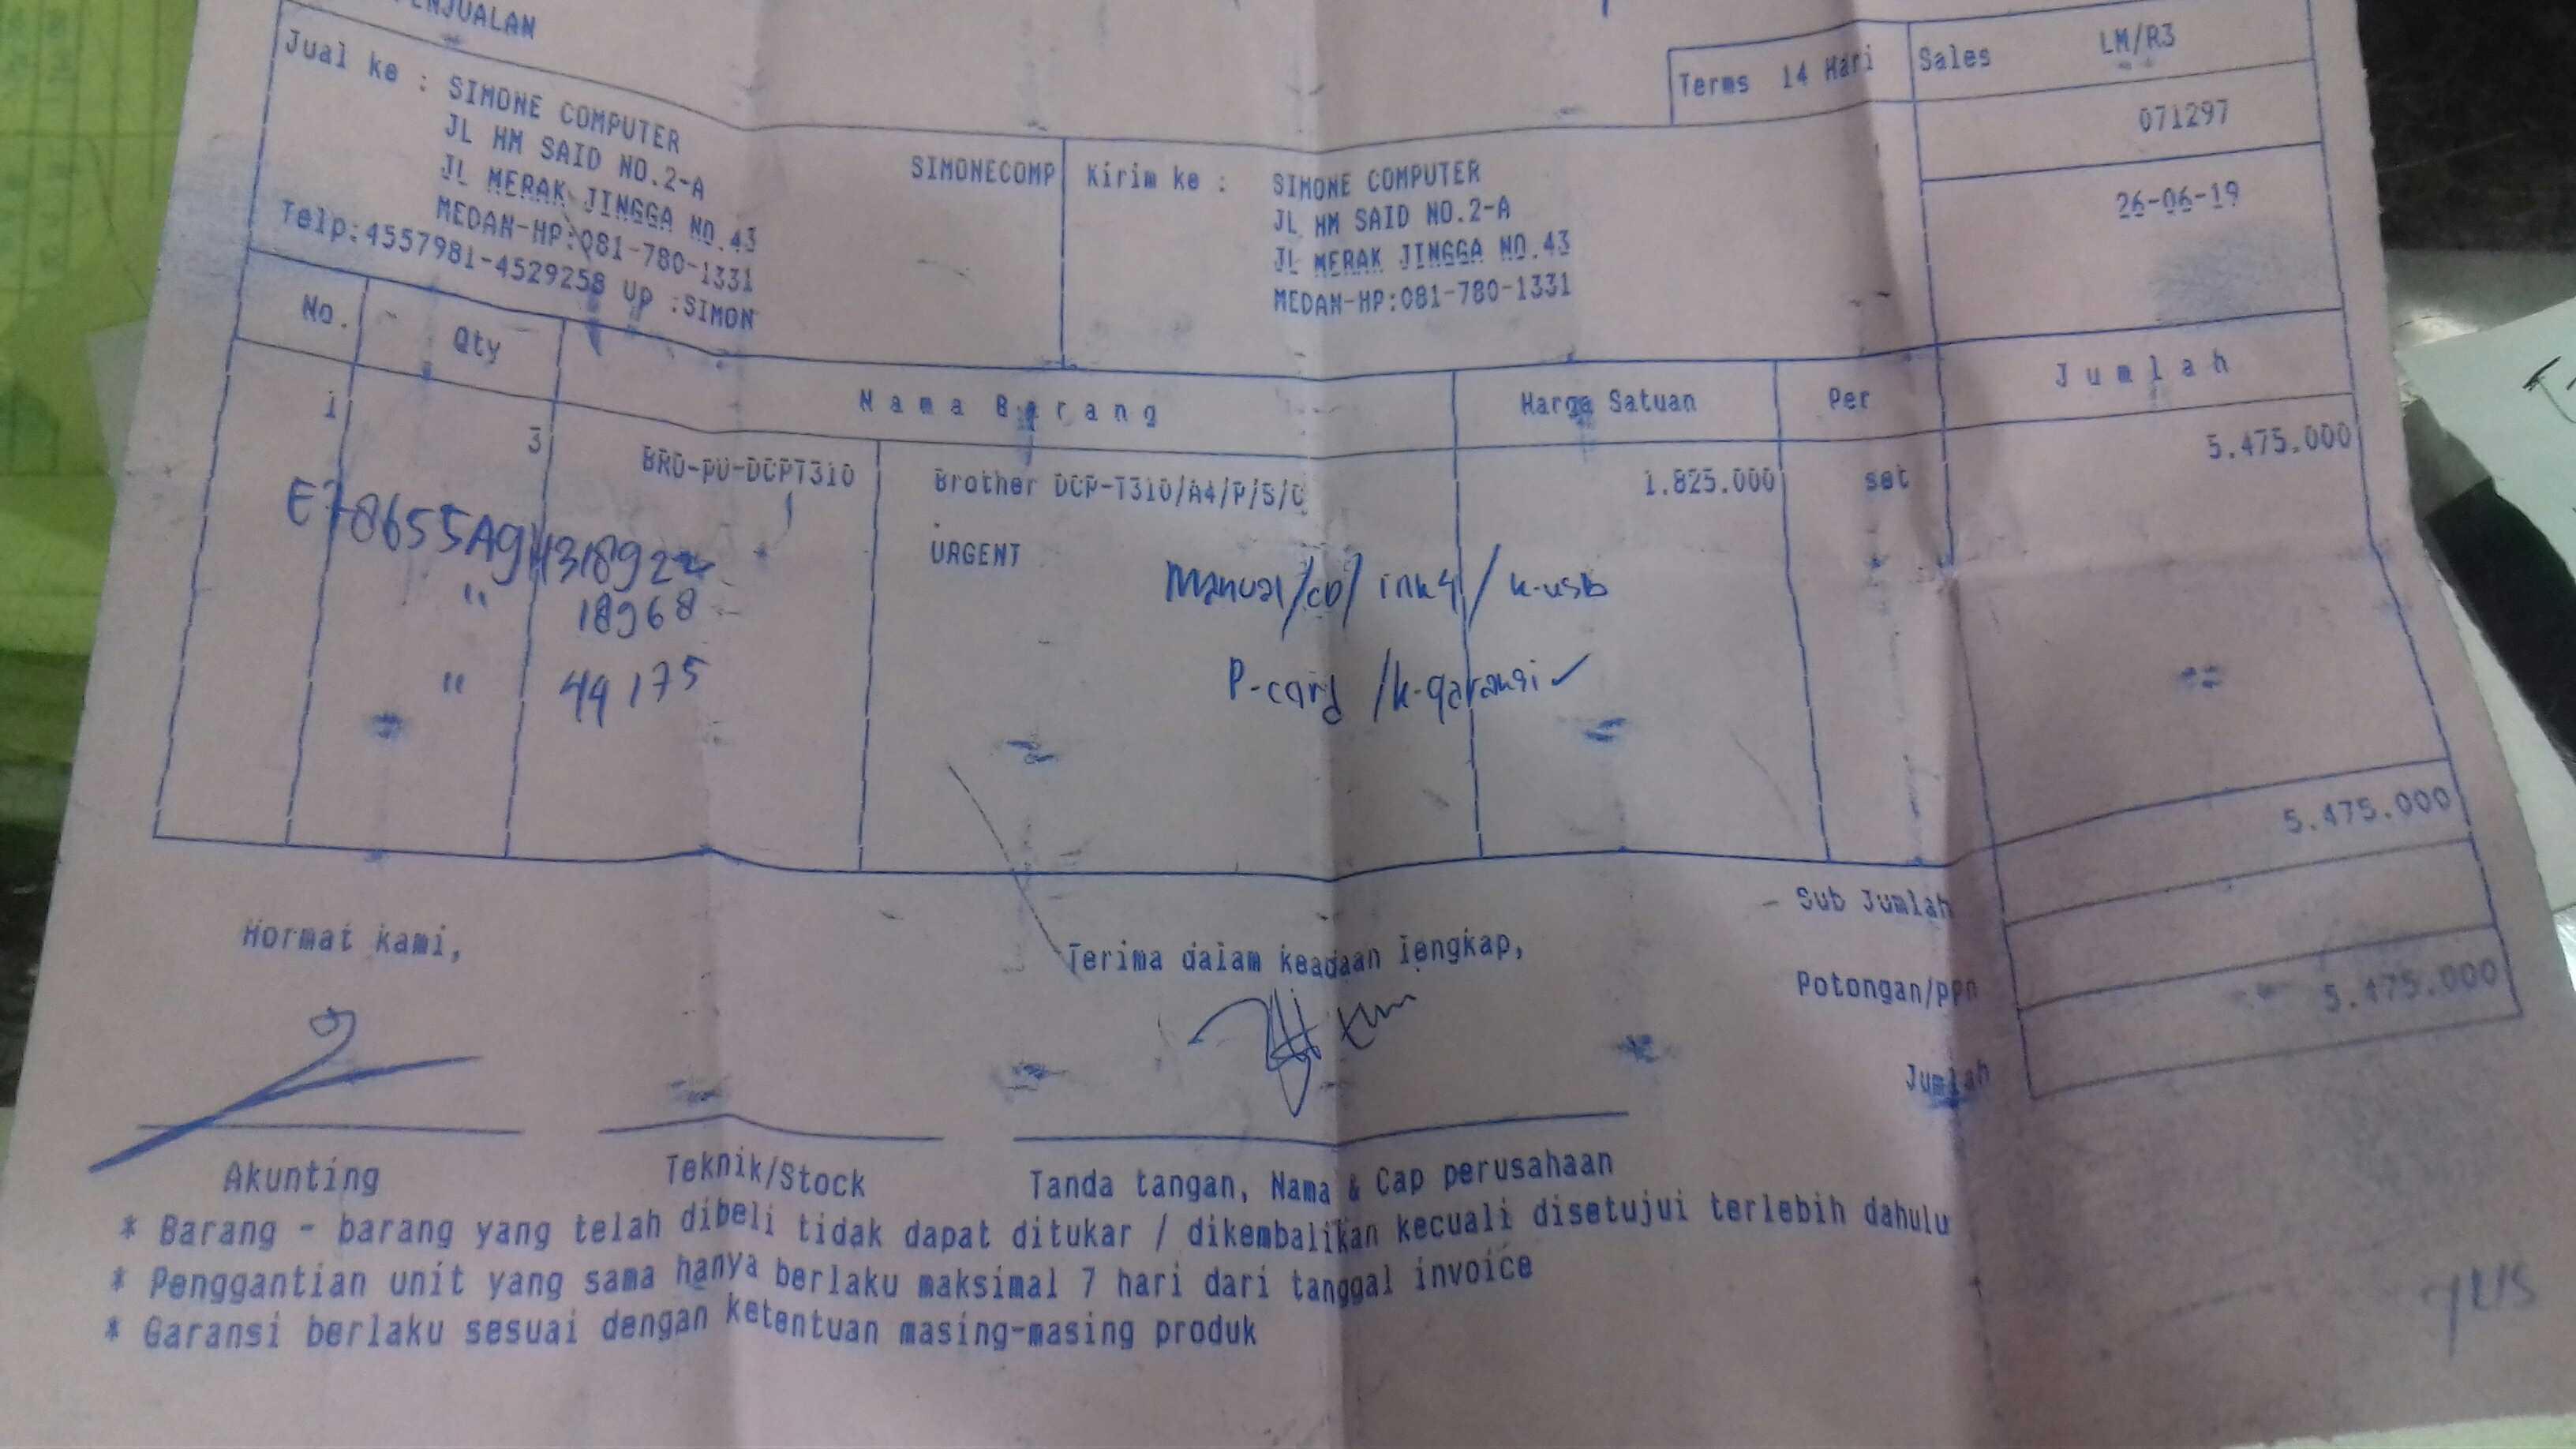 PENJUALAN
Terms 14 Hari
Sales LM/R3
071297
26-06-19
Jual ke : SIMONE COMPUTER
JL HM SAID NO.2-A
JL MERAK JINGGA NO.43
MEDAN-HP:081-780-1331
Telp:4557981-4529258 Up :SIMON
SIMONECOMP
Kirim ke : SIMONE COMPUTER
JL HM SAID NO.2-A
JL MERAK JINGGA NO.43
MEDAN-HP:081-780-1331
No. Qty Nama Barang Harga Satuan Per Jumlah
1 3 BRO-PU-DCPT310 Brother DCP-T310/A4/P/S/C 1.825.000 set 5.475.000
URGENT
E78655A9H318922
" 18968
" 44175
Manual/CD/ink4/k-usb
P-card/k-garansi ✓
5.475.000
Sub Jumlah
Potongan/PPn
5.475.000
Jumlah
Hormat kami,
Terima dalam keadaan lengkap,
Akunting
Teknik/Stock
Tanda tangan, Nama & Cap perusahaan
* Barang - barang yang telah dibeli tidak dapat ditukar / dikembalikan kecuali disetujui terlebih dahulu
* Penggantian unit yang sama hanya berlaku maksimal 7 hari dari tanggal invoice
* Garansi berlaku sesuai dengan ketentuan masing-masing produk